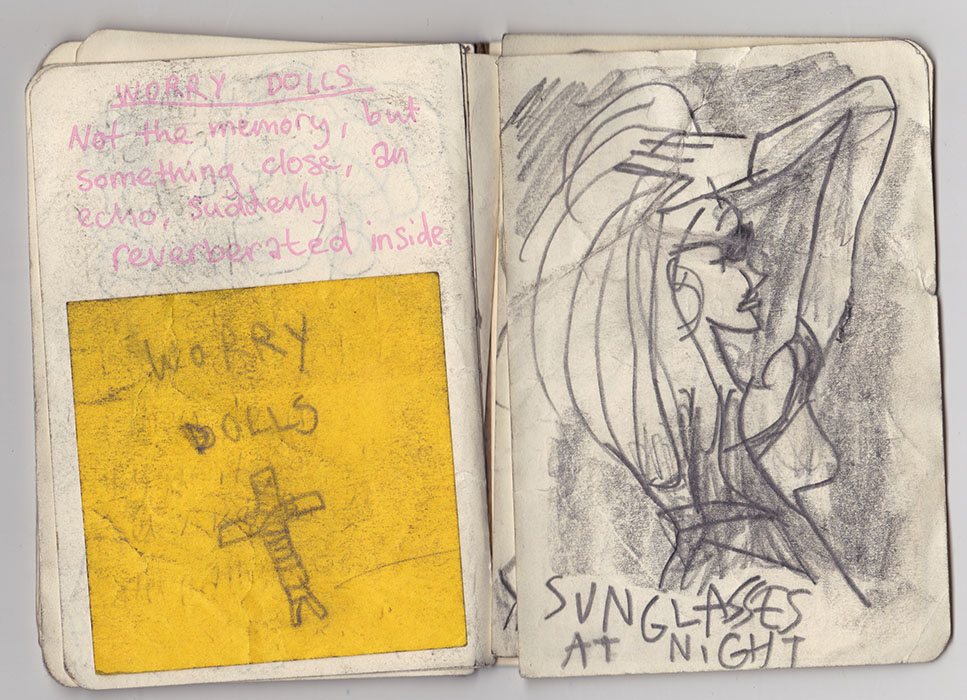 WORRY DOLLS
Not the memory, but
something close, an
echo, suddenly
reverberated inside.
WORRY
DOLLS
SUNGLASSES
AT NIGHT